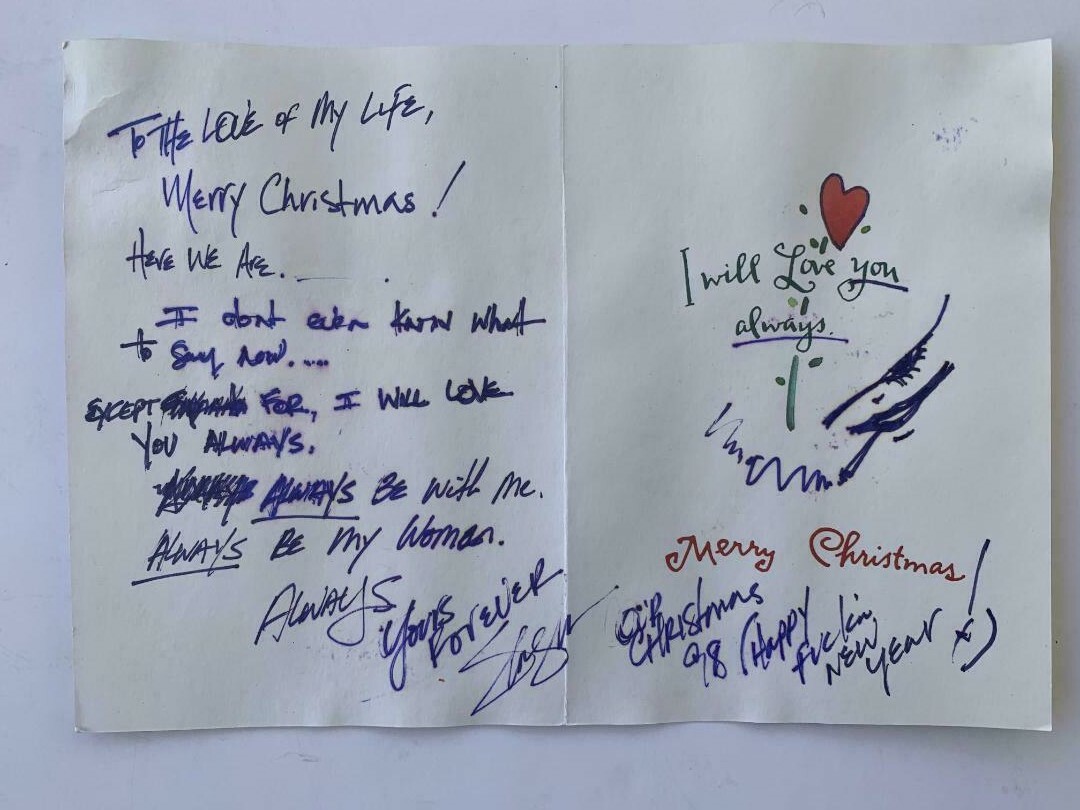 To THE LOVE of My LIFE,
Merry Christmas!
HERE WE ARE.
I dont even know what
to say now.....
EXCEPT FOR, I WILL LOVE
YOU ALWAYS.
ALWAYS BE WITH ME.
ALWAYS BE MY WOMAN.
ALWAYS
YOURS
FOREVER
I will Love you
always.
Merry Christmas!
OUR
CHRISTMAS
98 (HAPPY
FUCKIN
NEW
YEAR x)